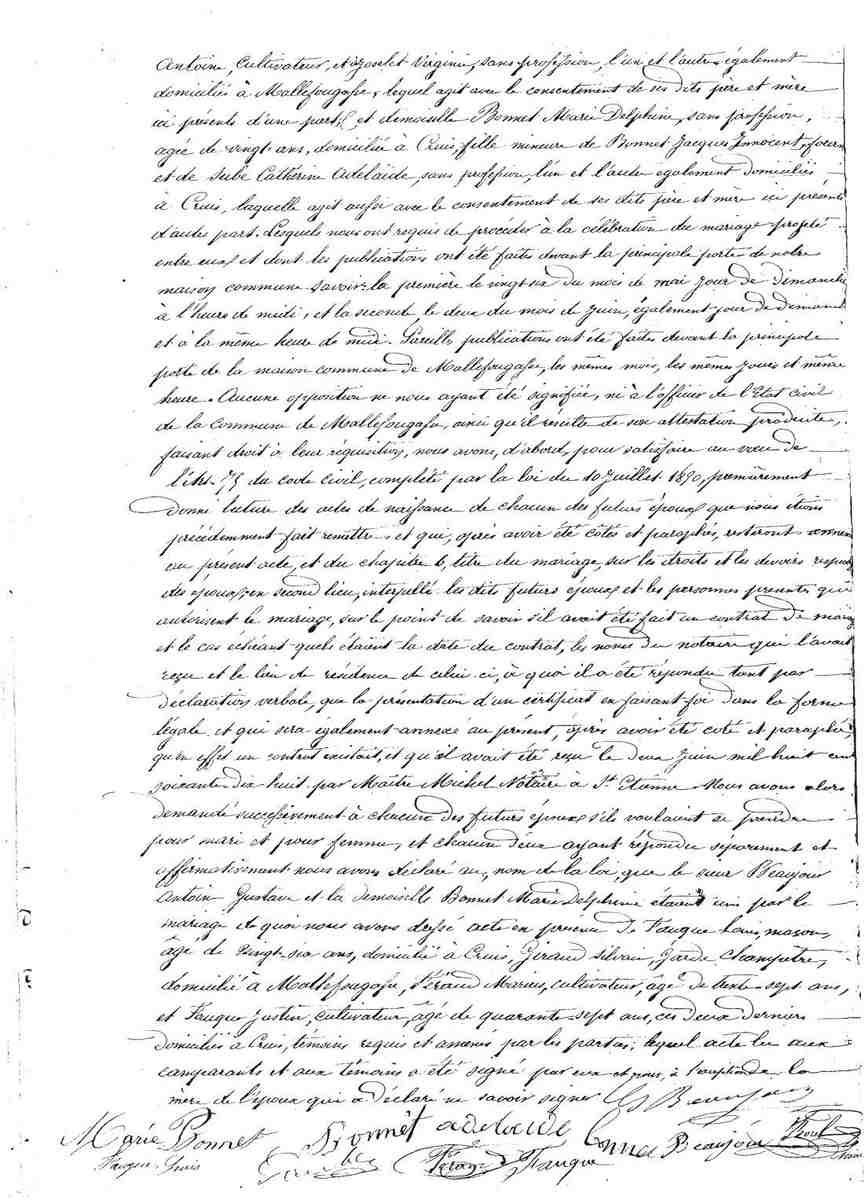 Antoine, Cultivateur, et Vozoselet Virginie, sans profession, l'un et l'autre également
domiciliés à Mallefougasse, lequel agit avec le consentement de ses dits père et mère
ici présents d'une part; et demoiselle Bonnet Marie Delphine, sans profession,
agée de vingt ans, domiciliée à Cruis, fille mineure de Bonnet Jacques Innocent,
et de Sube Catherine Adelaïde, sans profession, l'un et l'autre également domiciliés
à Cruis, laquelle agit aussi avec le consentement de ses dits père et mère ici présents
d'autre part. Lesquels nous ont requis de procéder à la célébration du mariage projeté
entre eux et dont les publications ont été faites devant la principale porte de notre
maison commune savoir: la première le vingt six du mois de mai jour de dimanche
à l'heure de midi, et la seconde, le deux du mois de Juin, également jour de dimanche
et à la même heure de midi. Pareilles publications ont été faites devant la principale
porte de la maison commune de Mallefougasse, les mêmes mois, les mêmes jours et même
heure. Aucune opposition ne nous ayant été signifiée, ni à l'officier de l'Etat civil
de la Commune de Mallefougasse, ainsi qu'il résulte de son attestation produite,
faisant droit à leur réquisition, nous avons, d'abord, pour satisfaire au vœu de
l'Art. 75 du code civil, complété par la loi du 10 Juillet 1850, premièrement
donné lecture des actes de naissance de chacun des futurs époux que nous étions
précédemment fait remettre et que, après avoir été cotés et paraphés, resteront annexés
au présent acte, et du chapitre 6, titre du mariage, sur les droits et les devoirs respectifs
des époux, en second lieu, interpellé les dits futurs époux et les personnes présentes qui
autorisent le mariage, sur le point de savoir s'il avait été fait un contrat de mariage
et le cas échéant quels étaient la date du contrat, les noms du notaire qui l'avait
reçu et le lieu de résidence de celui ci, à quoi il a été répondu tant par
déclaration verbale, que la présentation d'un certificat en faisant foi dans la forme
légale et qui sera également annexé au présent, après avoir été coté et paraphé,
qu'en effet un contrat existait, et qu'il avait été reçu le deux Juin mil huit cent
soixante dix huit par Maître Michel Notaire à St Etienne. Nous avons alors
demandé successivement à chacun des futurs époux s'ils voulaient se prendre
pour mari et pour femme, et chacun d'eux ayant répondu séparement et
affirmativement nous avons déclaré au nom de la loi, que le sieur Beaujour
Antoin Gustave et la demoiselle Bonnet Marie Delphine étaient unis par le
mariage de quoi nous avons dressé acte en présence de Fauque Louis, maçon,
âgé de vingt-six ans, domicilié à Cruis, Giraud Silvain, Garde Champêtre,
domicilié à Mallefougasse, Féraud Marius, cultivateur, âgé de trente-sept ans,
et Fauque Justin, cultivateur, âgé de quarante-sept ans, ces deux derniers
domiciliés à Cruis, témoins requis et amenés par les parties; lequel acte lu aux
comparants et aux témoins a été signé par eux et nous, à l'exception de la
mère de l'époux qui a déclaré ne savoir signer G Beaujour
Marie Bonnet Bonnet adelaide Bonnet Beaujour
Fauque Louis Féraud Fauque